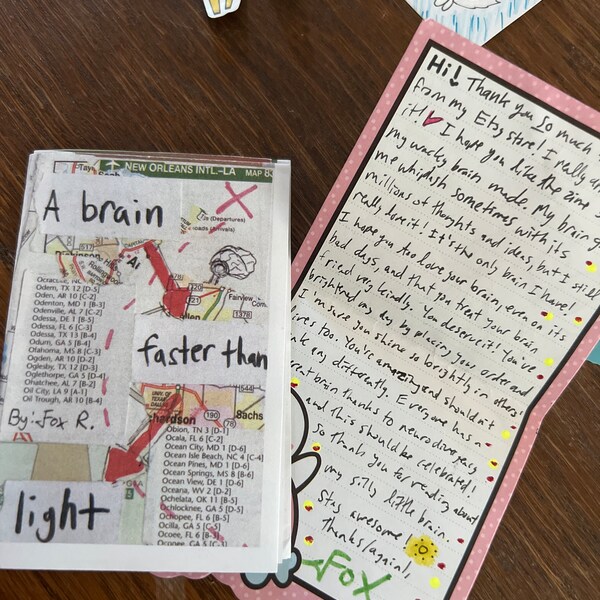 NEW ORLEANS INTL.-LA MAP 83
A brain
(Departures)
oads (Arrivals)
faster than
light
By: Fox R.
Fairview
Com
1378
220
721
517
544
190
78
8achs
hardson
UNIV. OF
TEXAS
DALLAS
Ocracoke, NC
Odem, TX 12 [D-5]
Oden, AR 10 [C-2]
Odenton, MD 1 [B-5]
Odenville, AL 7 [C-2]
Odessa, DE 1 [B-5]
Odessa, FL 6 [C-3]
Odessa, TX 13 [B-4]
Odum, GA 5 [B-4]
Oflahoma, MS 8 [C-3]
Ogden, AR 10 [D-2]
Oglesby, TX 12 [D-3]
Oglethorpe, GA 5 [D-4]
Ohatchee, AL 7 [B-2]
Oil City, LA 9 [A-1]
Oil Trough, AR 10 [B-4]
Obion, TN 3 [D-1]
Ocala, FL 6 [C-2]
Ocean City, MD 1 [D-6]
Ocean Isle Beach, NC 4 [C-4]
Ocean Pines, MD 1 [D-6]
Ocean Springs, MS 8 [B-6]
Ocean View, DE 1 [D-6]
Oceana, WV 2 [D-2]
Ochelata, OK 11 [B-5]
Ochlocknee, GA 5 [D-5]
Ochopee, FL 6 [B-5]
Ocilla, GA 5 [C-5]
Ocoee, FL 6 [B-3]
Oconee, GA 5 [C-3]
Hi! Thank you so much
from my Etsy store! I really
it! I hope you like the zine I
my wacky brain made. My brain
me whiplash sometimes with its
millions of thoughts and ideas, but I still
really love it! It's the only brain I have!
I hope you too love your brain, even on its
bad days, and that you treat your brain
very kindly. You deserve it! You've
brightened my day by placing your order and
I'm sure you shine so brightly in others'
lives too. You're amazing and shouldn't
any differently. Everyone has a
brain thanks to neurodivergency
and this should be celebrated!
So thank you for reading about
my silly little brain.
Stay awesome!
Thanks again!
FOX